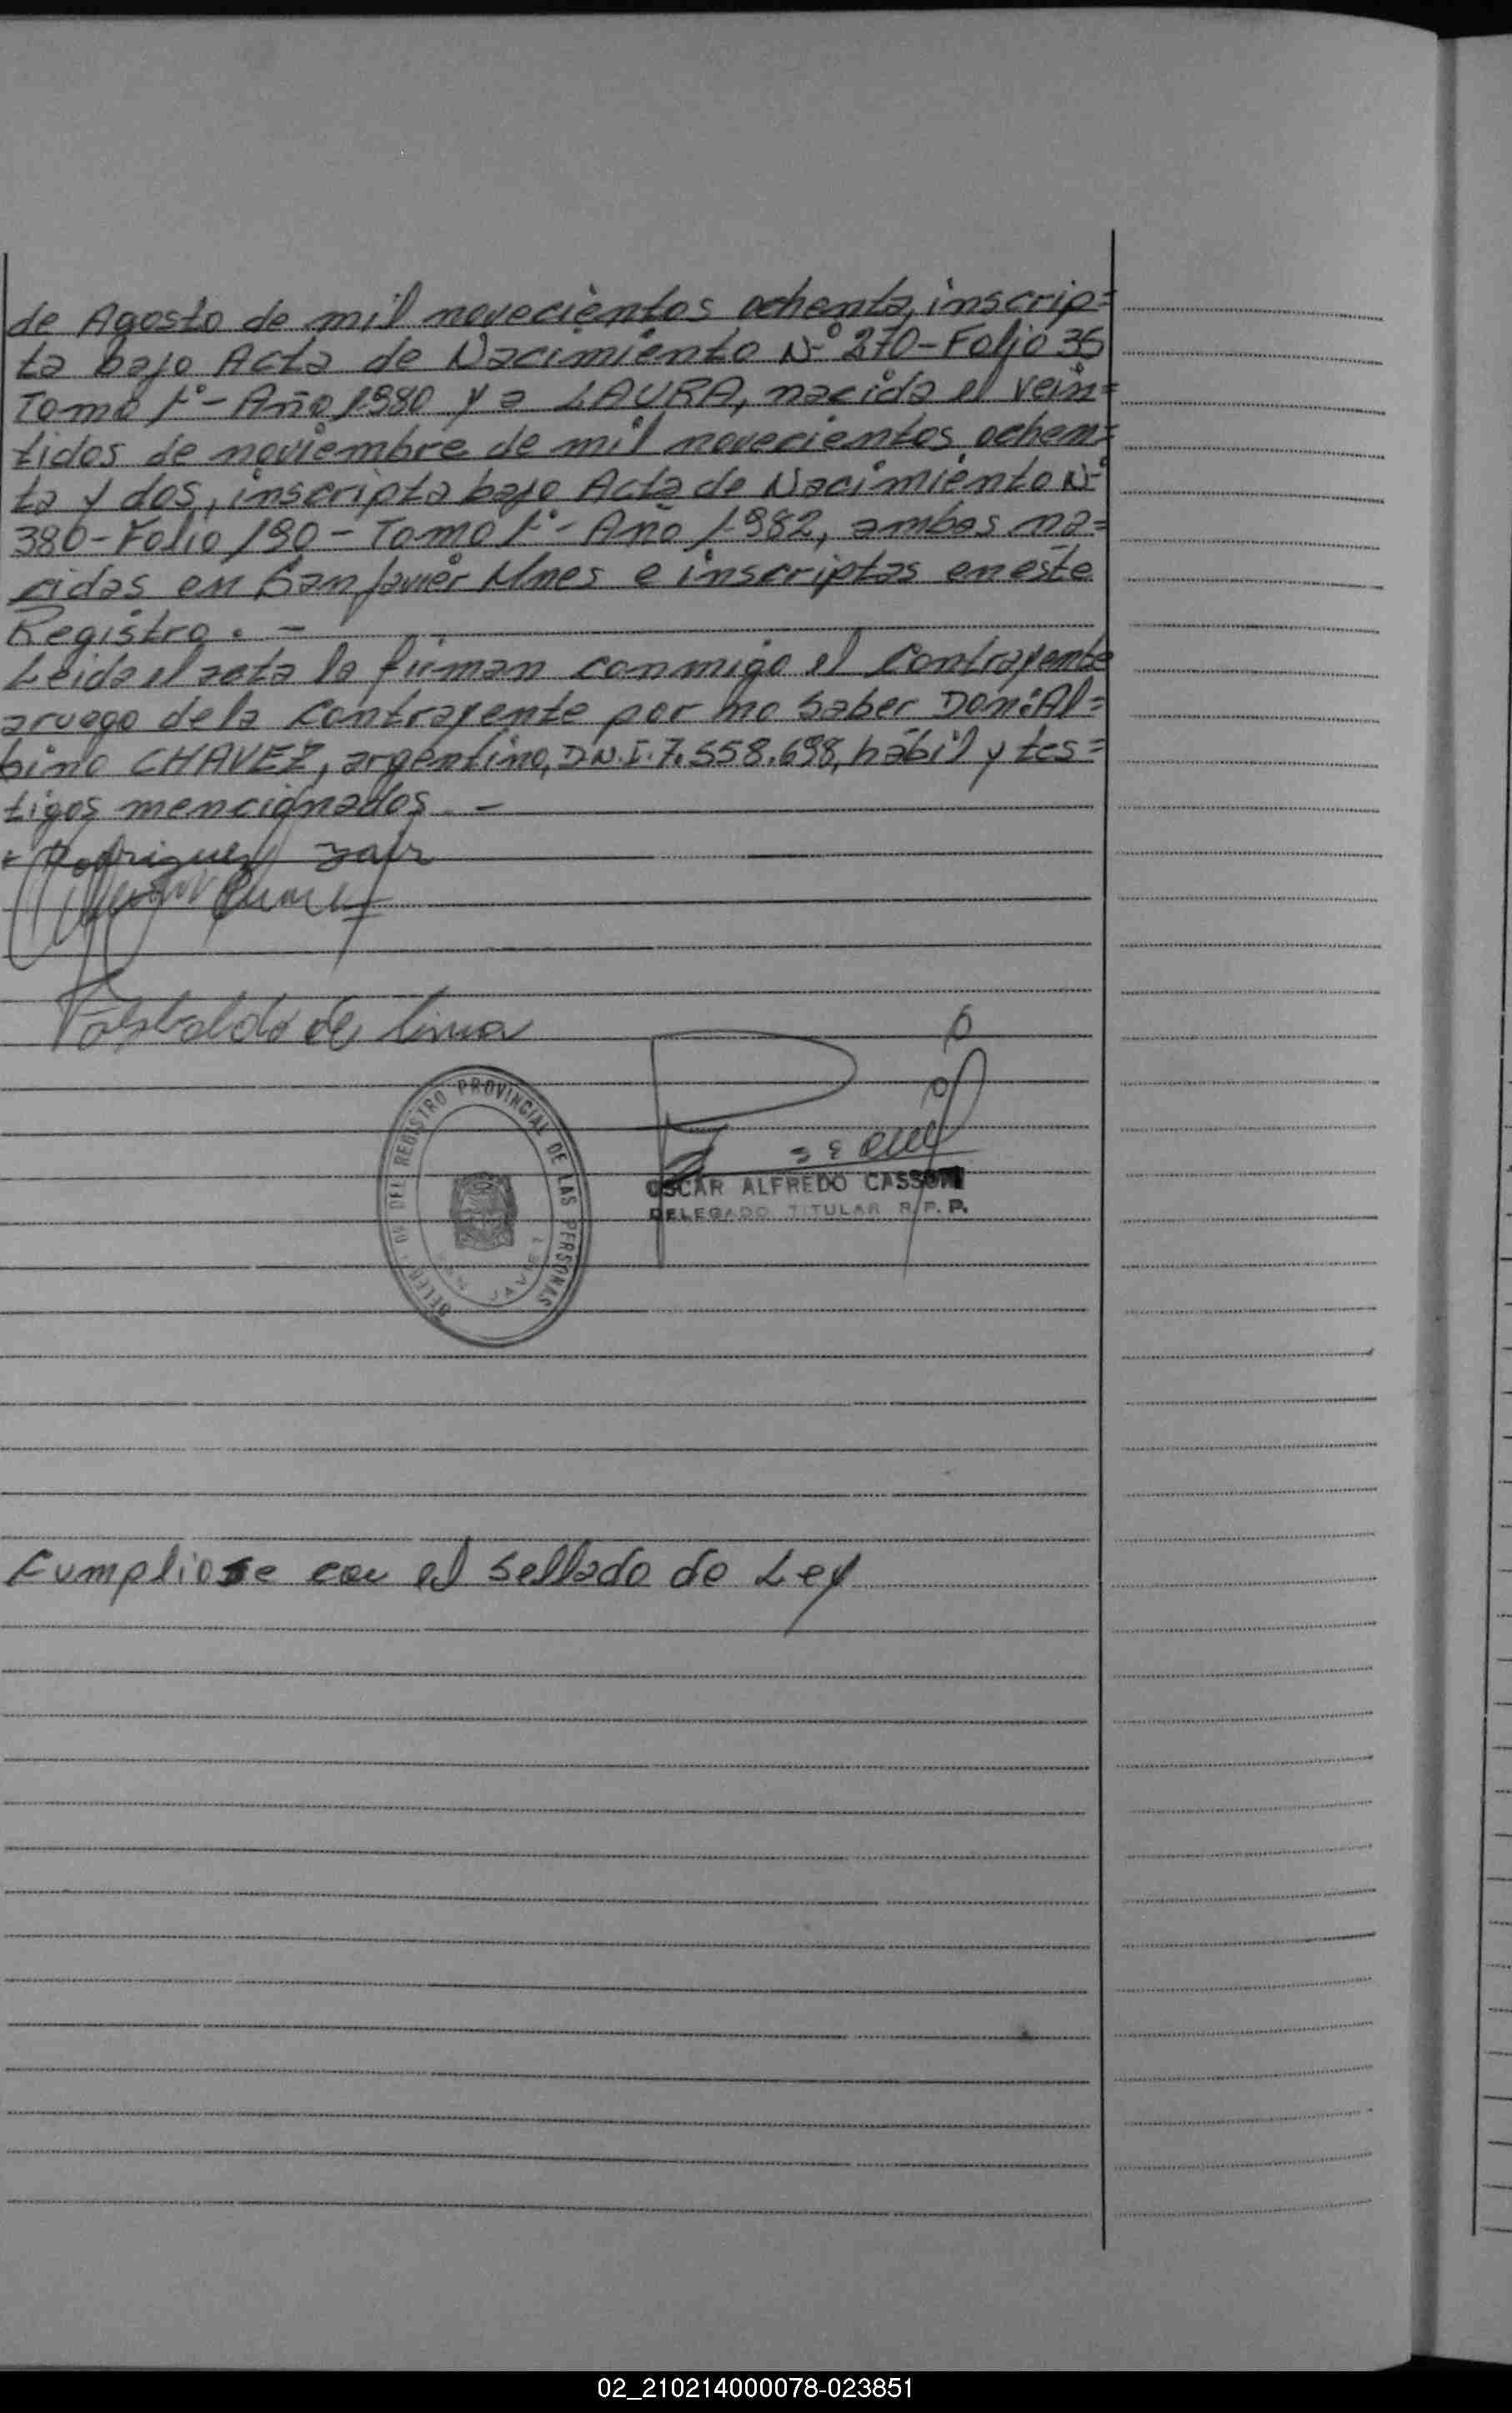 de Agosto de mil novecientos ochenta, inscrip=
ta bajo Acta de Nacimiento Nº 270-Folio 35
Tomo 1º-Año 1980 y a LAURA, nacida el vein=
tidos de noviembre de mil novecientos ochen=
ta y dos, inscripta bajo Acta de Nacimiento Nº
380-Folio 190-Tomo 1º-Año 1982, ambas na=
cidas en San Javier Mnes e inscriptas en este
Registro.-
Leida el acta la firman conmigo el Contrayente
aruego de la Contrayente por no saber Don: Al=
bino CHAVEZ, argentino, D.N.I. 7.558.698, hábil y tes=
tigos mencionados.-
Rodriguez
de Lima
DELEG DEL REGISTRO PROVINCIAL DE LAS PERSONAS
SAN JAVIER
OSCAR ALFREDO CASSONI
DELEGADO TITULAR R.P.P.
Cumpliose con el Sellado de Ley
02_210214000078-023851